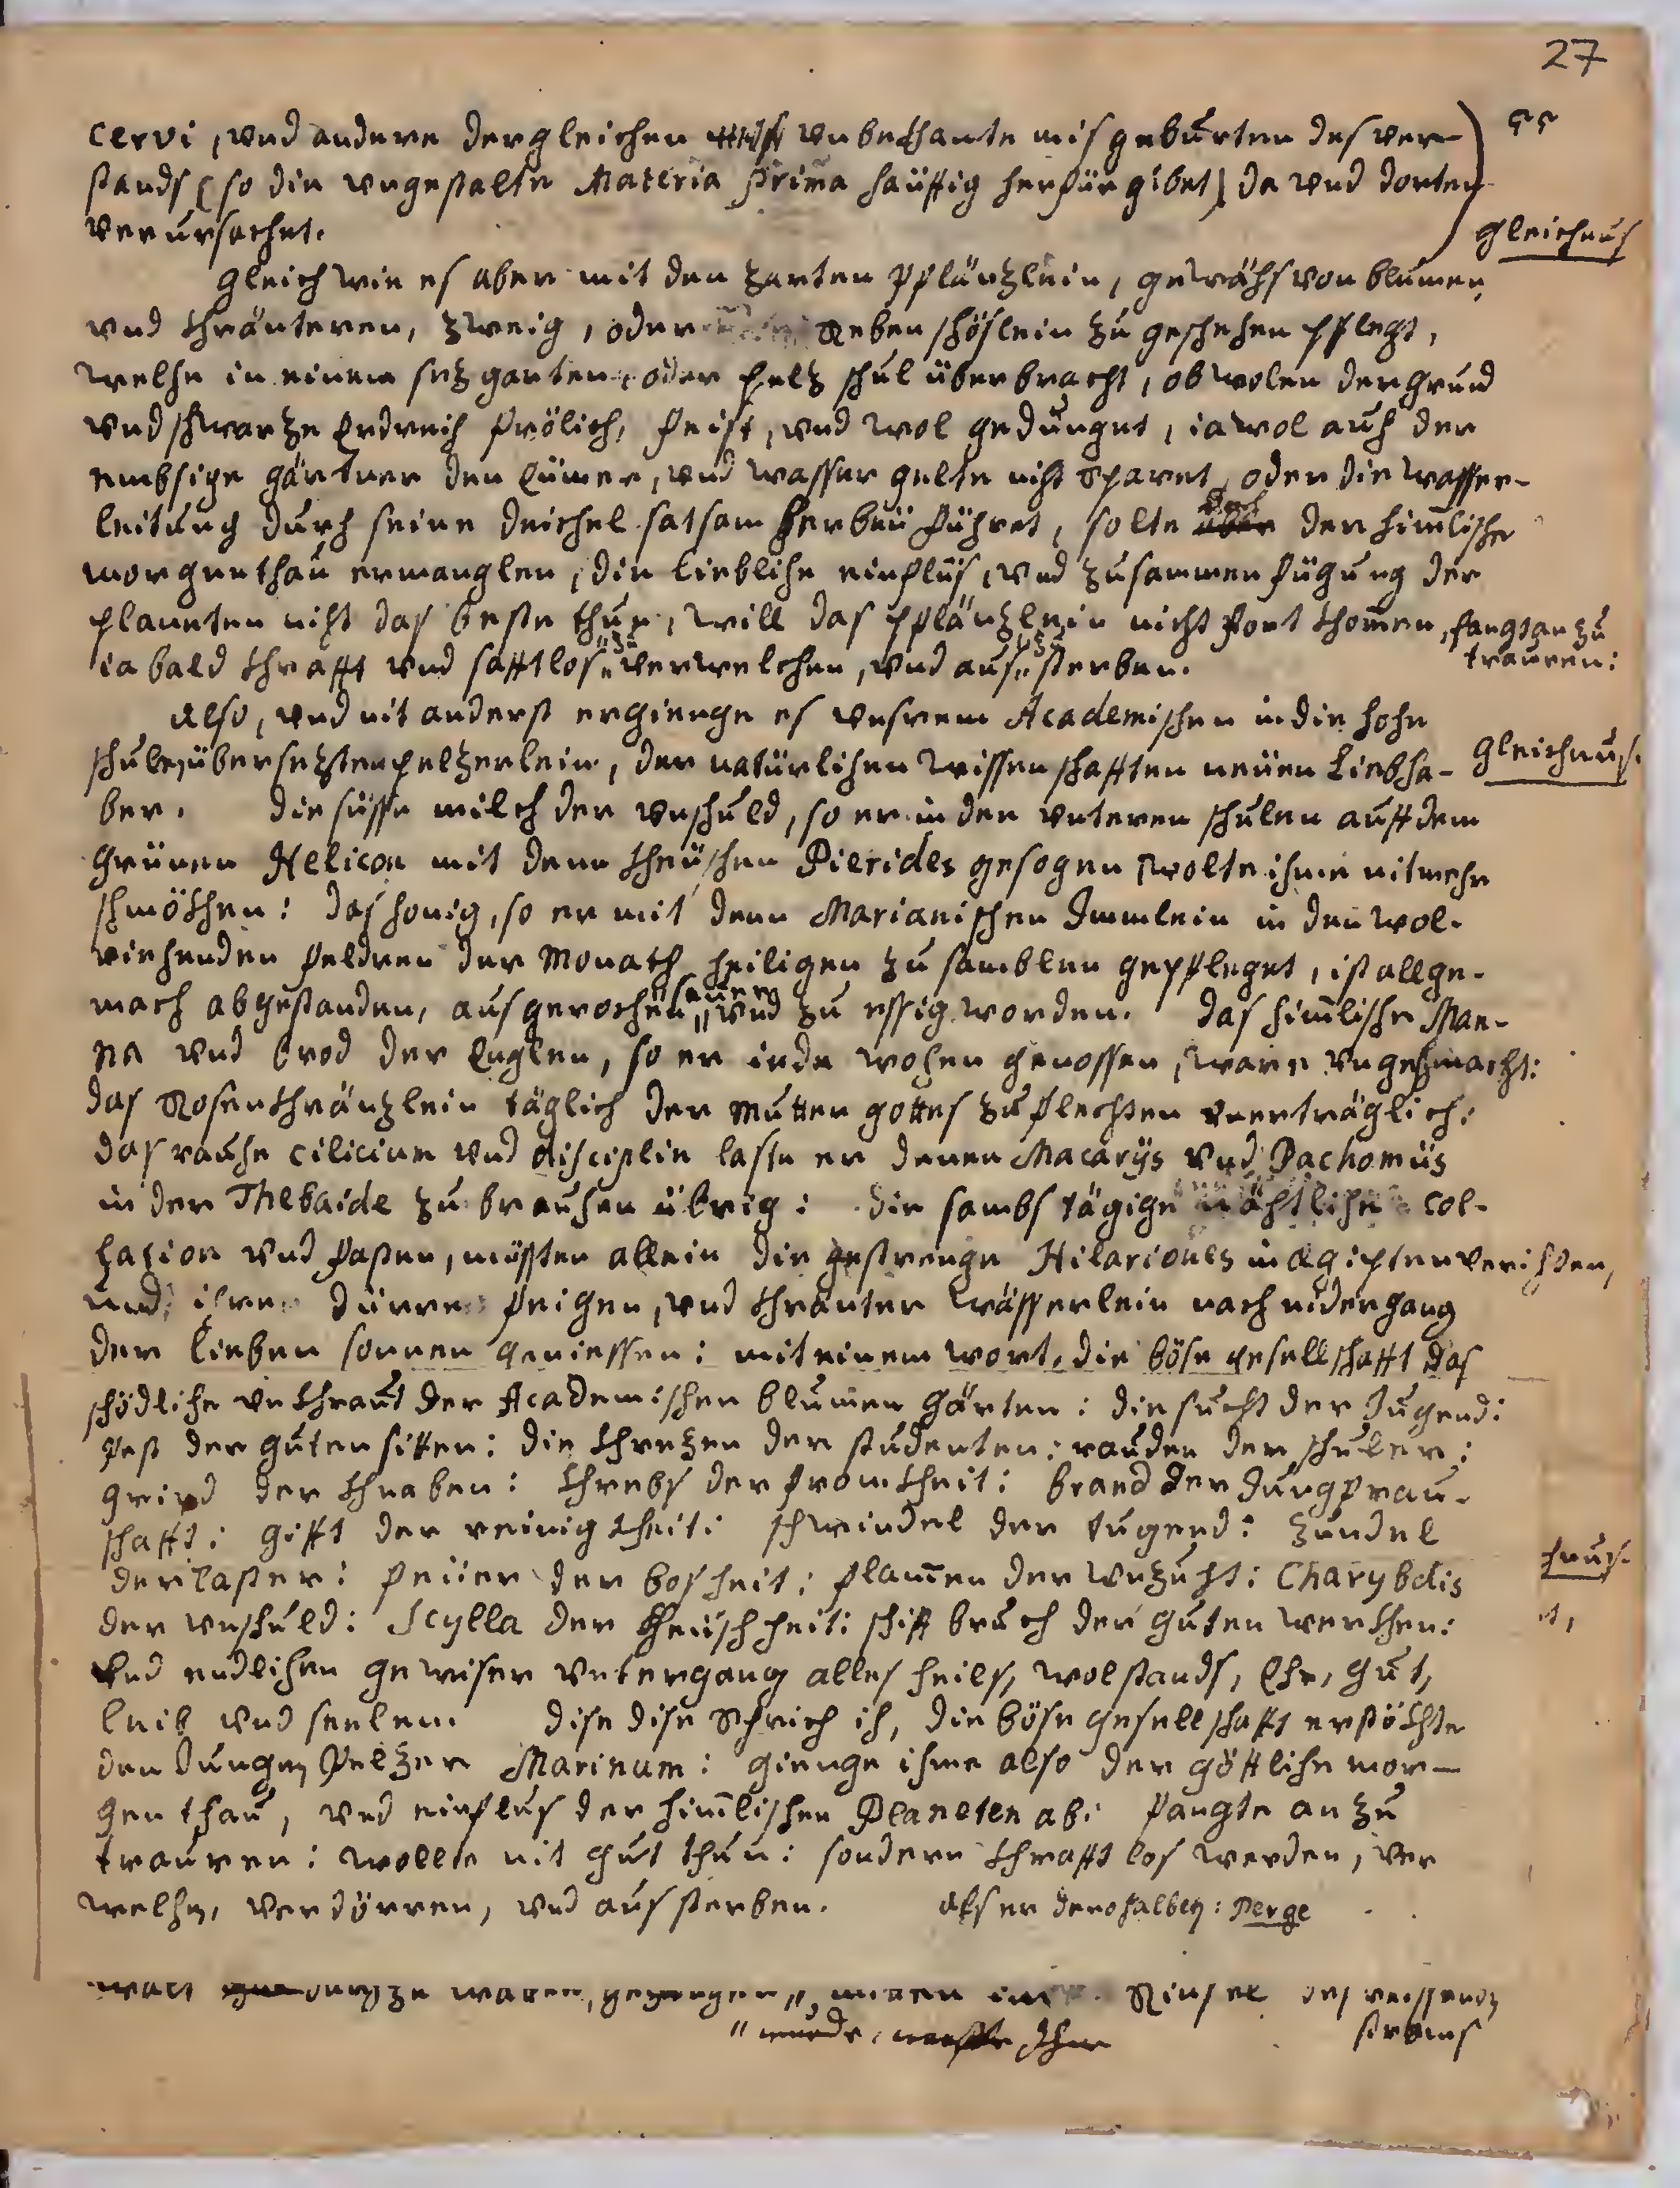 27
cervi, vnd andere dergleichen vnbekhante misgeburten des ver-
stands (so die vngestalte Materia prima häuffig herfür gibet) da vnd dorten
verursachet.
gleichnus
Gleich wie es aber mit den zarten pflänzlein, gewächs von blumen,
vnd khräuteren, zweig, oder Reben schöslein zu geschehen pflegt,
welche in einem sezgarten oder pelz schul überbracht, obwolen der grund
vnd schwarze Erdreich frölich, feist, vnd wol gedunget, ja wol auch der
embsige gärtner den Eimer, vnd wasser gelte nicht sparet, oder die wasser-
leitung durch seine deichel satsam herbeü führet, solte doch der himlische
morgenthau ermanglen, die liebliche einflus, vnd zusammenfügung der
planeten nicht das beste thue, will das pflänzlein nicht fort khomen, fangt an zu
trauren:
ja bald khrafft vnd safftlos zu verwelchen, vnd aus zu sterben.
Also, vnd nit anderst ergienge es vnserem Academischen in die hohe
schule übersezten pelzerlein, der natürlichen wissenschafften neüen Liebha-
gleichnus.
ber. die süsse milch der vnschuld, so er in den vnteren schulen auff dem
grünen Helicon mit denen kheüschen Pierides gesogen, wolte ihme nit mehr
schmökhen: das honig, so er mit denen Marianischen Immlein in den wol-
riehenden feldren der Monath heiligen zu samblen gepfleget, ist allge-
mach abgestanden, ausgerochen, sauer vnd zu essig worden. das himlische Man-
na vnd brod der Englen, so er jede wohen genossen, ware vngeschmacht:
das Rosenkhränzlein täglich der mutter gottes zu flechten vnerträglich:
das rauhe cilicium vnd disciplin lasse er denen Macarijs vnd Pachomiis
in der Thebaide zu brauhen übrig: die sambstägige nächtliche col-
lazion vnd fasten, müssten allein die gestrenge Hilariones in Ægipten verichten,
und ihre dürre feigen, vnd khräuter wässerlein nach nidergang
der lieben sonnen geniessen: mit einem wort, die böse gesellschafft das
schödliche vnkhraut der Academischen blumen gärten: die sucht der Jugend:
Pest der guten sitten: die khrezen der studenten: rauden der schuler:
grind der khnaben: khrebs der fromkheit: brand der Jungfrau-
schafft: gifft der reinigkheit: schwindel der tugend: zundel
der laster: feüer der bosheit: flamen der vnzucht: Charybdis
der vnschuld: Scylla der kheüschheit: schiffbruch der guten werkhen:
vnd endlichen gewiser vntergang alles heils, wolstands, Ehr, gut,
leib vnd seelen. dise dise schreich ich, die böse gesellschafft erstökhte
den Jungen Pelzer Marinum: gienge ihme also der göttliche mor-
gen thau, vnd einflus der himlischen Planeten ab: fangte an zu
trauren: wolle nit gut thun: sondern khrafft los werden, ver
welhen, verdörren, vnd aussterben. Als er derohalben: Perge
des reissenden
stroms